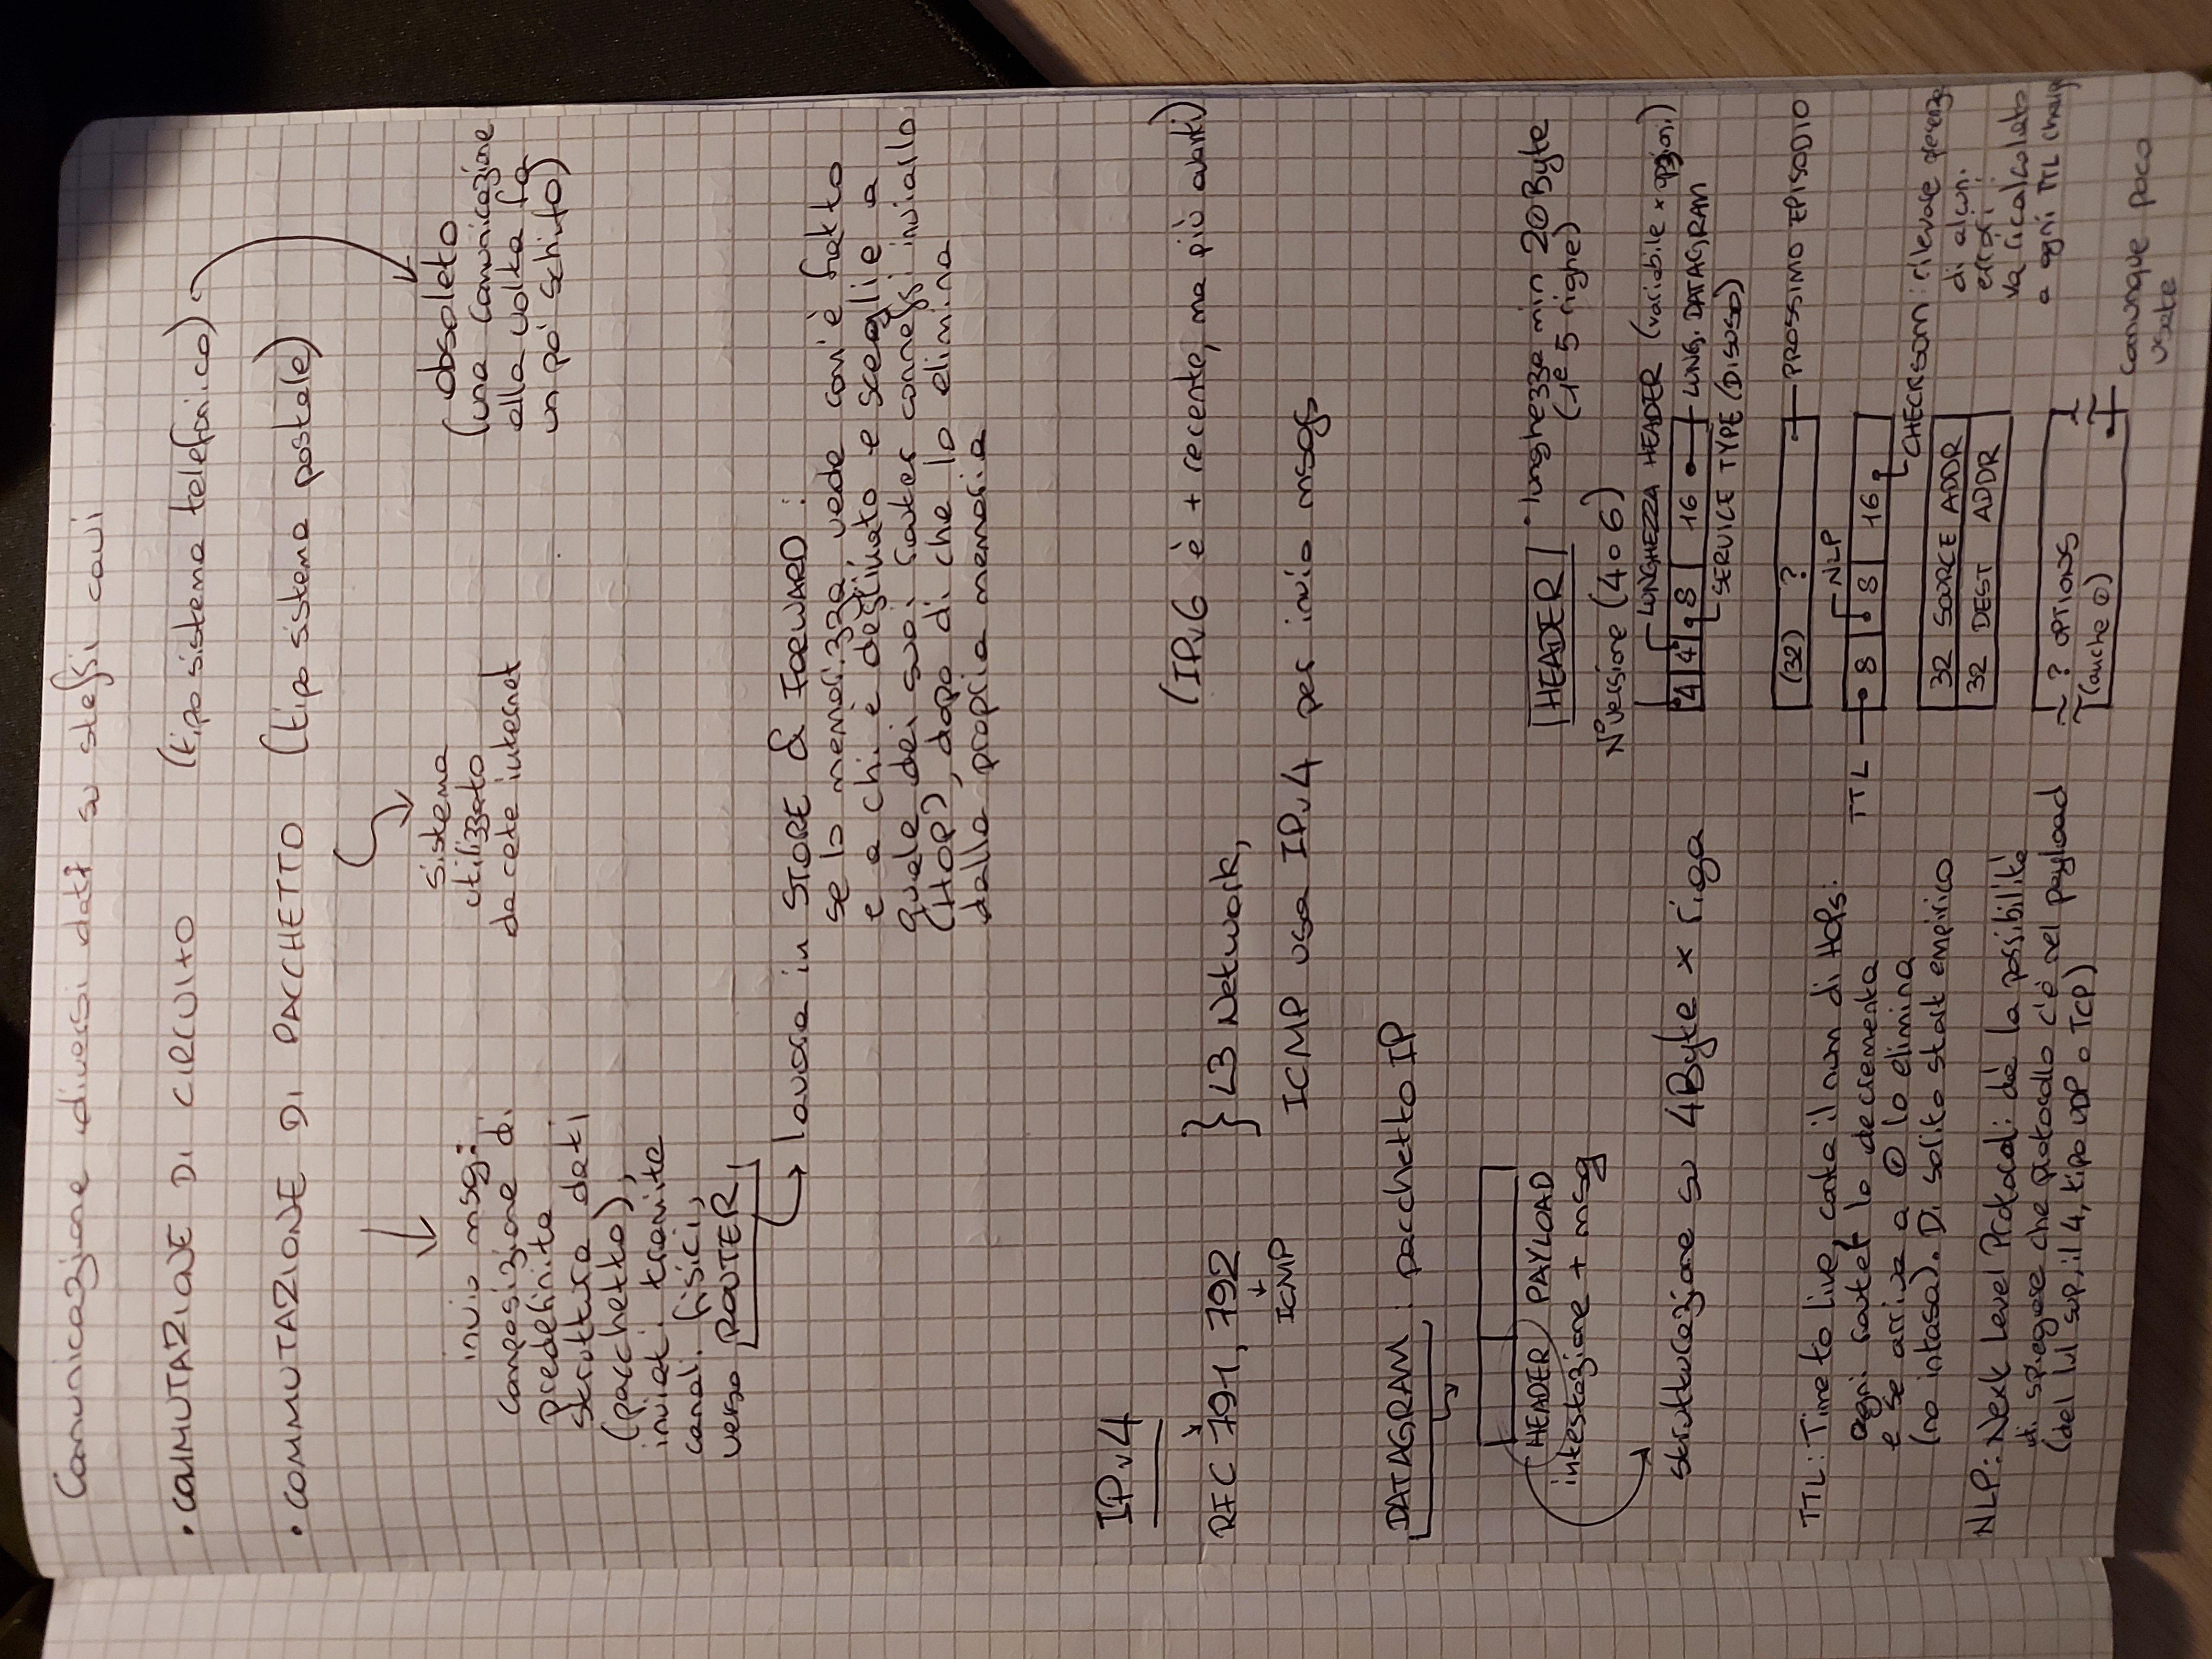 Comunicazione diversi dati su stessi cavi
• COMMUTAZIONE DI CIRCUITO (tipo sistema telefonico)
• COMMUTAZIONE DI PACCHETTO (tipo sistema postale)
invio msg:
composizione di
predefinita
struttura dati
(pacchetto),
inviati tramite
canali fisici,
verso ROUTER
sistema
utilizzato
da rete internet
obsoleto
(una comunicazione
alla volta fa
un po' schifo)
lavora in STORE & FORWARD :
se lo memorizza, vede com'è fatto
e a chi è destinato e sceglie a
quale dei suoi router connessi inviarlo
(HOP), dopo di che lo elimina
dalla propria memoria
IPv4
(IPv6 è + recente, ma più avanti)
RFC 791, 792 } L3 Network,
ICMP
ICMP usa IPv4 per invio msgs
DATAGRAM : pacchetto IP
HEADER PAYLOAD
intestazione + msg
strutturazione su 4Byte x riga
HEADER • lunghezza min 20Byte
(1e 5 righe)
N°versione (4 o 6)
LUNGHEZZA HEADER (variabile x opzioni)
4 4 8 16 LUNG. DATAGRAM
SERVICE TYPE (DISUSO)
(32) ? PROSSIMO EPISODIO
NLP
TTL 8 8 16
CHECKSUM: rilevare presenza
di alcuni
errori:
va ricalcolato
a ogni TTL change
32 SOURCE ADDR
32 DEST ADDR
? OPTIONS
(anche 0)
comunque poco
usate
TTL: Time to live, conta il num di HOPs:
ogni router lo decrementa
e se arriva a 0 lo elimina
(no intasa). Di solito start empirico
NLP: Next Level Protocol: dà la possibilità
di spiegare che protocollo c'è nel payload
(del lvl sup, il 4, tipo UDP o TCP)